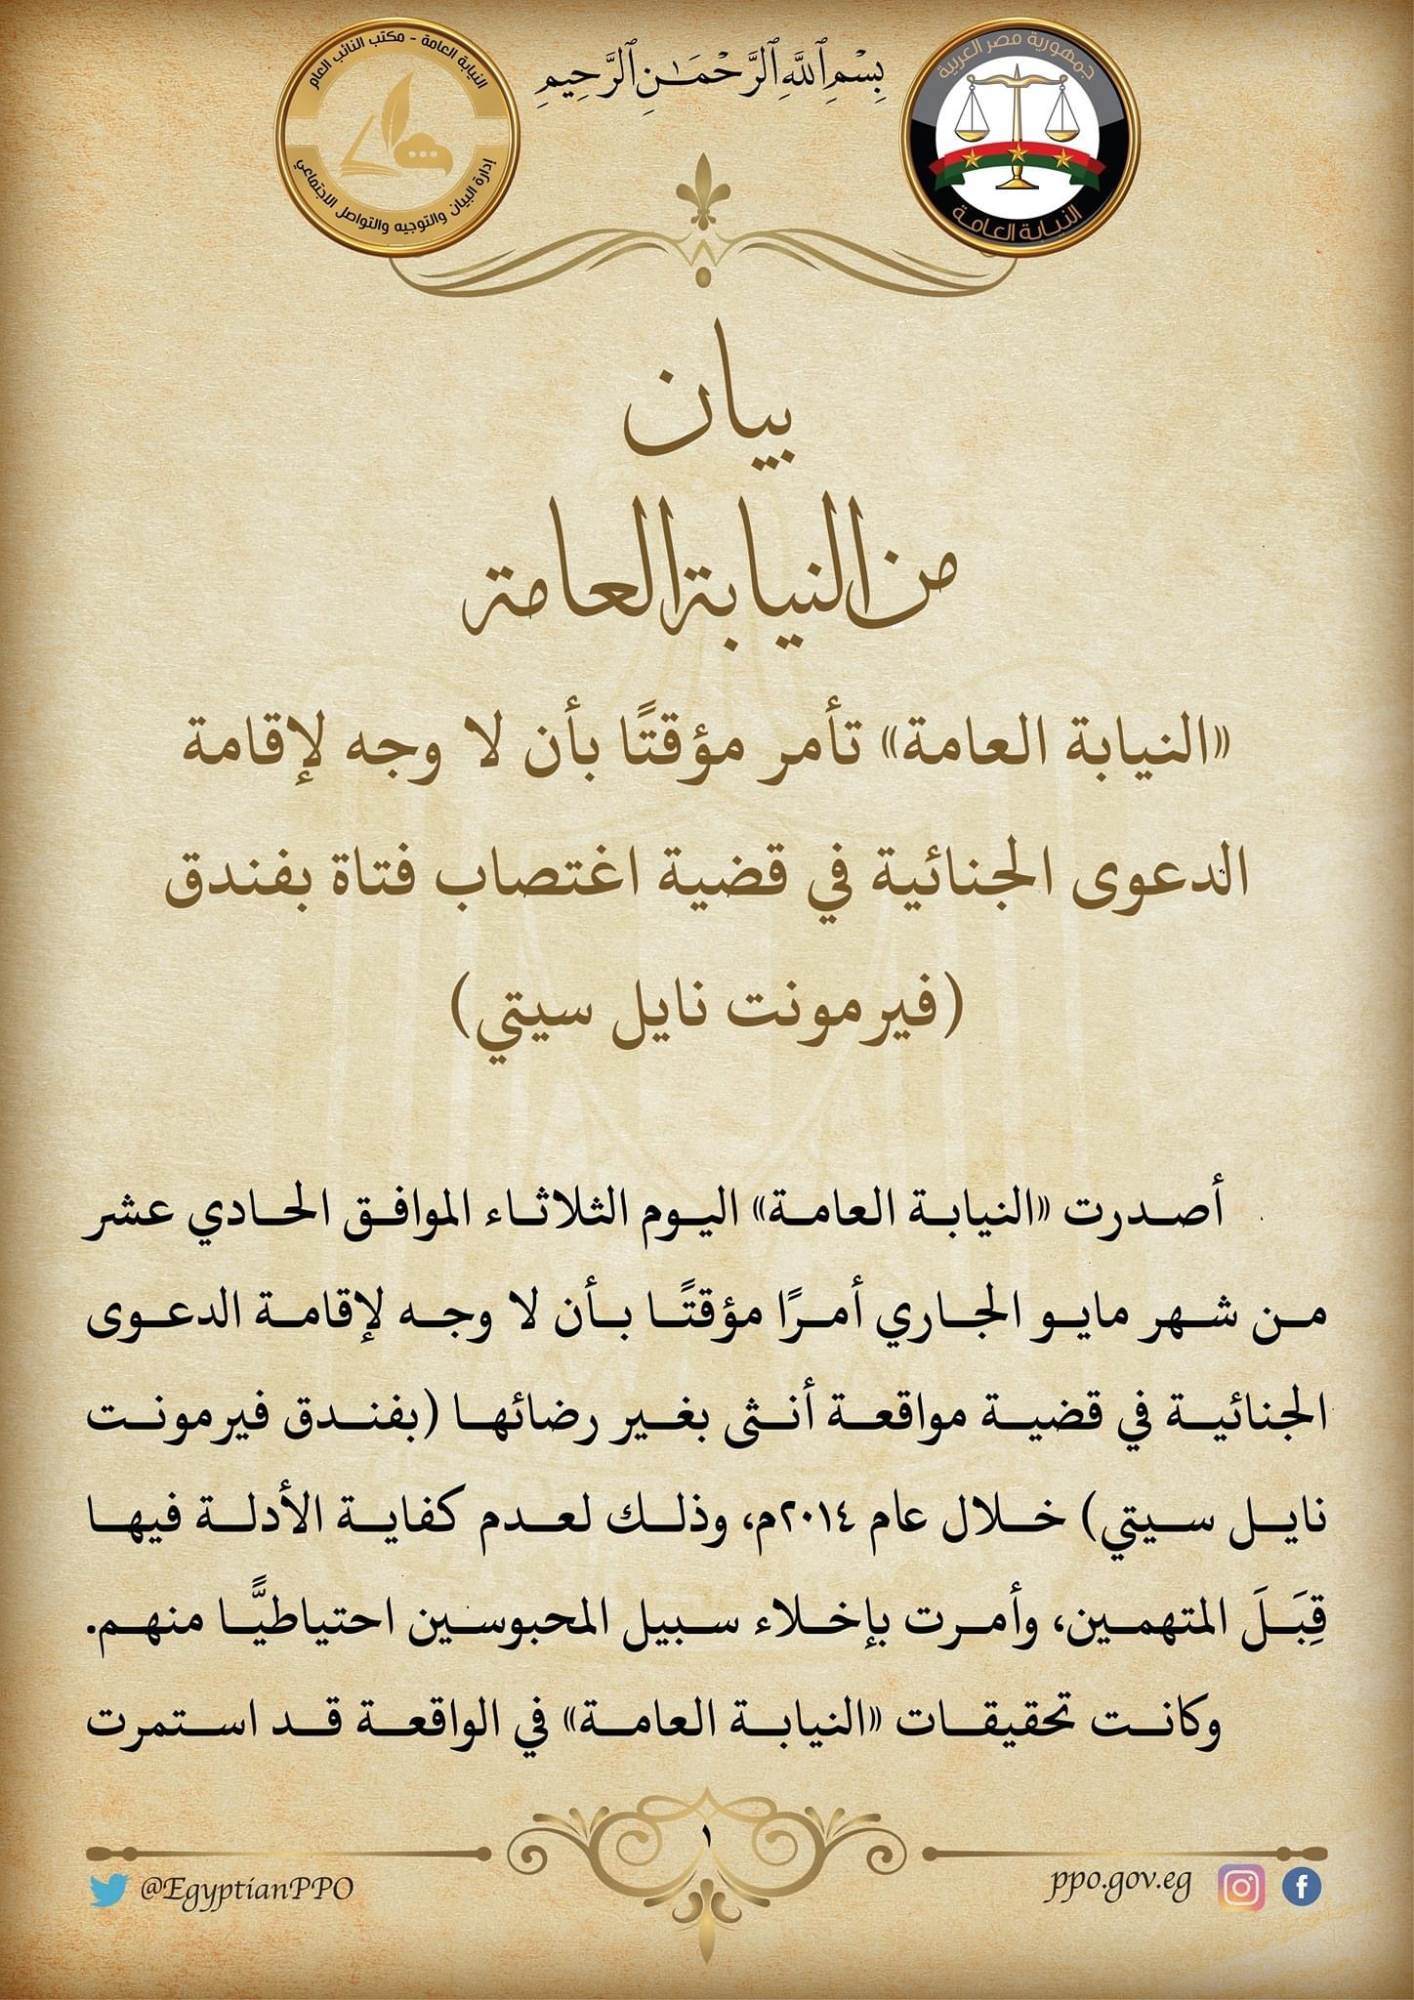 النيابة العامة - مكتب النائب العام
إدارة البيان والتوجيه والتواصل الاجتماعي
بِسْمِ ٱللَّهِ ٱلرَّحْمَـٰنِ ٱلرَّحِيمِ
جمهورية مصر العربية
النيابة العامة
بيان
من النيابة العامة
«النيابة العامة» تأمر مؤقتًا بأن لا وجه لإقامة
الدعوى الجنائية في قضية اغتصاب فتاة بفندق
(فيرمونت نايل سيتي)
أصدرت «النيابة العامة» اليوم الثلاثاء الموافق الحادي عشر
من شهر مايو الجاري أمرًا مؤقتًا بأن لا وجه لإقامة الدعوى
الجنائية في قضية مواقعة أنثى بغير رضائها (بفندق فيرمونت
نايل سيتي) خلال عام ٢٠١٤م، وذلك لعدم كفاية الأدلة فيها
قِبَلَ المتهمين، وأمرت بإخلاء سبيل المحبوسين احتياطيًّا منهم.
وكانت تحقيقات «النيابة العامة» في الواقعة قد استمرت
١
@EgyptianPPO
ppo.gov.eg